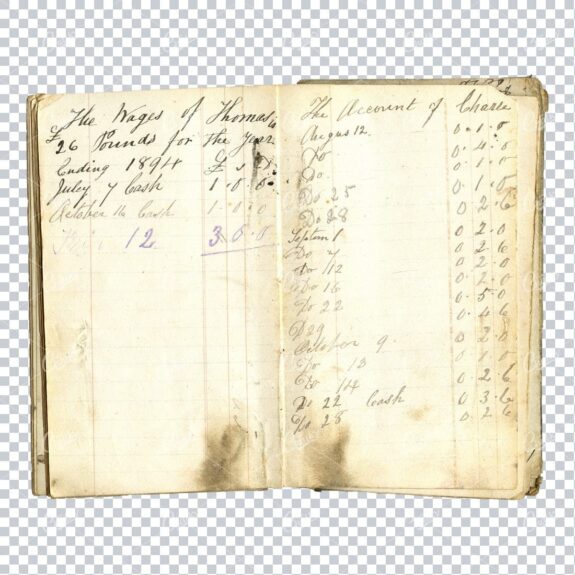 The Wages of Thomas
£ 26 Pounds for the Year
Ending 1894 £ s D
July 7 Cash 1.0.0
October 16 Cash 1.0.0
12 3 0 0
The Account of Charle
Augus 12 0.1.0
Do 0.4.0
Do 0.1.0
Do 25 0.1.0
Do 28 0.2.6
Septem 1 0.2.0
Do 7 0.2.6
Do 12 0.2.0
Do 16 0.2.0
Do 22 0.5.0
D 29 0.4.6
October 9 0.2.0
Do 13 0.1.0
Do 14 0.2.6
Do 22 Cash 0.3.6
Do 28 0.2.6